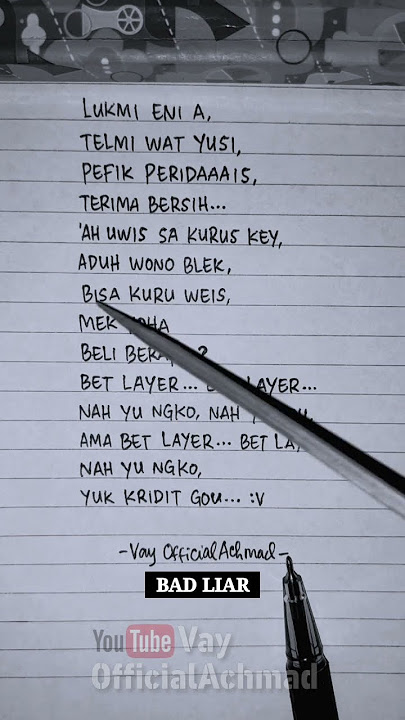 LUKMI ENI A,
TELMI WAT YUSI,
PEFIK PERIDAAAIS,
TERIMA BERSIH...
'AH UWIS SA KURUS KEY,
ADUH WONO BLEK,
BISA KURU WEIS,
MEK
BELI ?
BET LAYER... LAYER...
NAH YU NGKO, NAH
AMA BET LAYER... BET
NAH YU NGKO,
YUK KRIDIT GOU... :V
-Vay OfficialAchmad-
BAD LIAR
YouTube Vay
OfficialAchmad